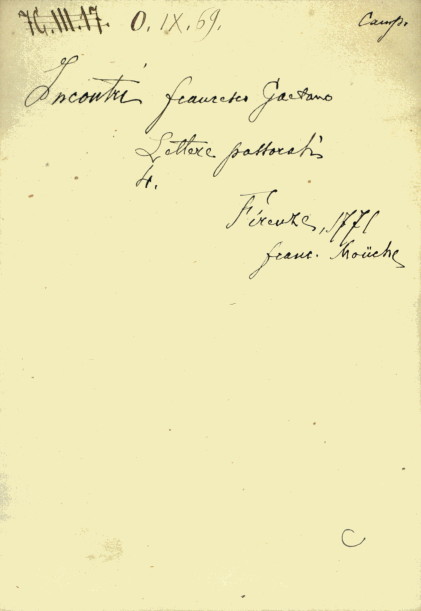 76.III.17. O.IX.69. Camp.
Incontri Francesco Gaetano
Lettere pastorali
4.
Firenze, 1771
franc. Moücke
C